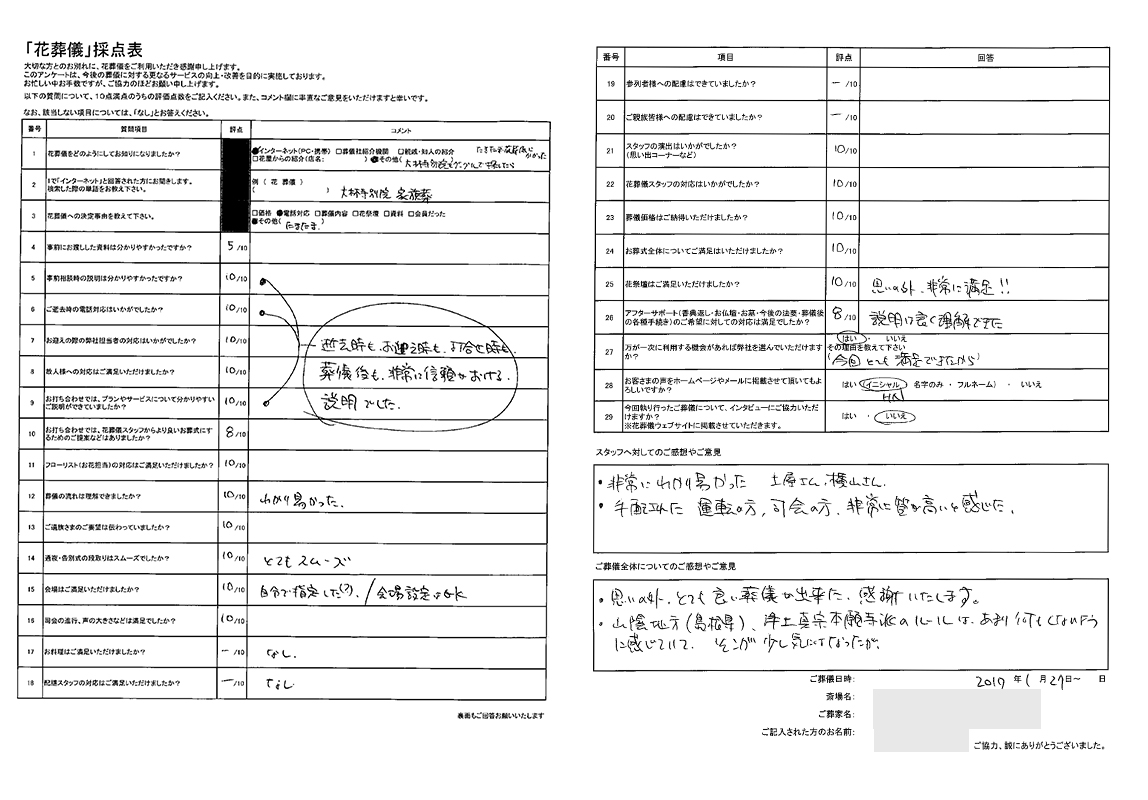 「花葬儀」採点表
大切な方とのお別れに、花葬儀をご利用いただき感謝申し上げます。
このアンケートは、今後の葬儀に対する更なるサービスの向上・改善を目的に実施しております。
お忙しい中お手数ですが、ご協力のほどお願い申し上げます。
以下の質問について、10点満点のうちの評価点数をご記入ください。また、コメント欄に率直なご意見をいただけますと幸いです。
なお、該当しない項目については、「なし」とお答えください。
番号 質問項目 評点 コメント
1 花葬儀をどのようにしてお知りになりましたか? インターネット(PC・携帯) □葬儀社紹介機関 □親戚・知人の紹介
□花屋からの紹介(店名: ) その他(
2 1で「インターネット」と回答された方にお聞きします。
検索した際の単語をお教え下さい。 例 ( 花 葬儀 )
( ) 家族葬
3 花葬儀への決定事由を教えて下さい。 □価格 電話対応 □葬儀内容 □花祭壇 □資料 □会員だった
その他( たまたま )
4 事前にお渡しした資料は分かりやすかったですか? 5/10
5 事前相談時の説明は分かりやすかったですか? 10/10
6 ご逝去時の電話対応はいかがでしたか? 10/10
7 お迎えの際の弊社担当者の対応はいかがでしたか? 10/10
8 故人様への対応はご満足いただけましたか? 10/10
9 お打ち合わせでは、プランやサービスについて分かりやすい
ご説明ができていましたか? 10/10
逝去時も、お迎え時も、打合せ時も、
葬儀後も、非常に信頼がおける、
説明でした。
10 お打ち合わせでは、花葬儀スタッフからより良いお葬式にするためのご提案などはありましたか? 8/10
11 フローリスト(お花担当)の対応はご満足いただけましたか? 10/10
12 葬儀の流れは理解できましたか? 10/10 わかり易かった。
13 ご遺族さまのご要望は伝わっていましたか? 10/10
14 通夜・告別式の段取りはスムーズでしたか? 10/10 とてもスムーズ
15 会場はご満足いただけましたか? 10/10 自分で指定した(?)。/会場設定はOK
16 司会の進行、声の大きさなどは満足でしたか? 10/10
17 お料理はご満足いただけましたか? -/10 なし.
18 配膳スタッフの対応はご満足いただけましたか? -/10 なし
裏面もご回答お願いいたします
番号 項目 評点 回答
19 参列者様への配慮はできていましたか? -/10
20 ご親族皆様への配慮はできていましたか? -/10
21 スタッフの演出はいかがでしたか?
(思い出コーナーなど) 10/10
22 花葬儀スタッフの対応はいかがでしたか? 10/10
23 葬儀価格はご納得いただけましたか? 10/10
24 お葬式全体についてご満足はいただけましたか? 10/10
25 花祭壇はご満足いただけましたか? 10/10 思いの外、非常に満足!!
26 アフターサポート(香典返し・お仏壇・お墓・今後の法要・葬儀後の各種手続き)のご希望に対しての対応は満足でしたか? 8/10 説明は良く理解できた
27 万が一次に利用する機会があれば弊社を選んでいただけますか? はい ・ いいえ
その理由を教えて下さい
(今回とても満足できたから)
28 お客さまの声をホームページやメールに掲載させて頂いてもよろしいですか? はい (イニシャル 名字のみ ・ フルネーム) ・ いいえ
29 今回執り行ったご葬儀について、インタビューにご協力いただけますか?
※花葬儀ウェブサイトに掲載させていただきます。 はい ・ いいえ
スタッフへ対してのご感想やご意見
・非常にわかり易かった 土屋さん、横山さん。
・手配された 運転の方、司会の方、非常に質が高いと感じた。
ご葬儀全体についてのご感想やご意見
・思いの外、とても良い葬儀が出来た、感謝いたします。
・山陰地方(島根県)、浄土真宗本願寺派のルールは、あまり
に感じていて、そこが少し気にはなったが。
ご葬儀日時: 2019 年 1 月 27日~ 日
斎場名:
ご葬家名:
ご記入された方のお名前:
ご協力、誠にありがとうございました。